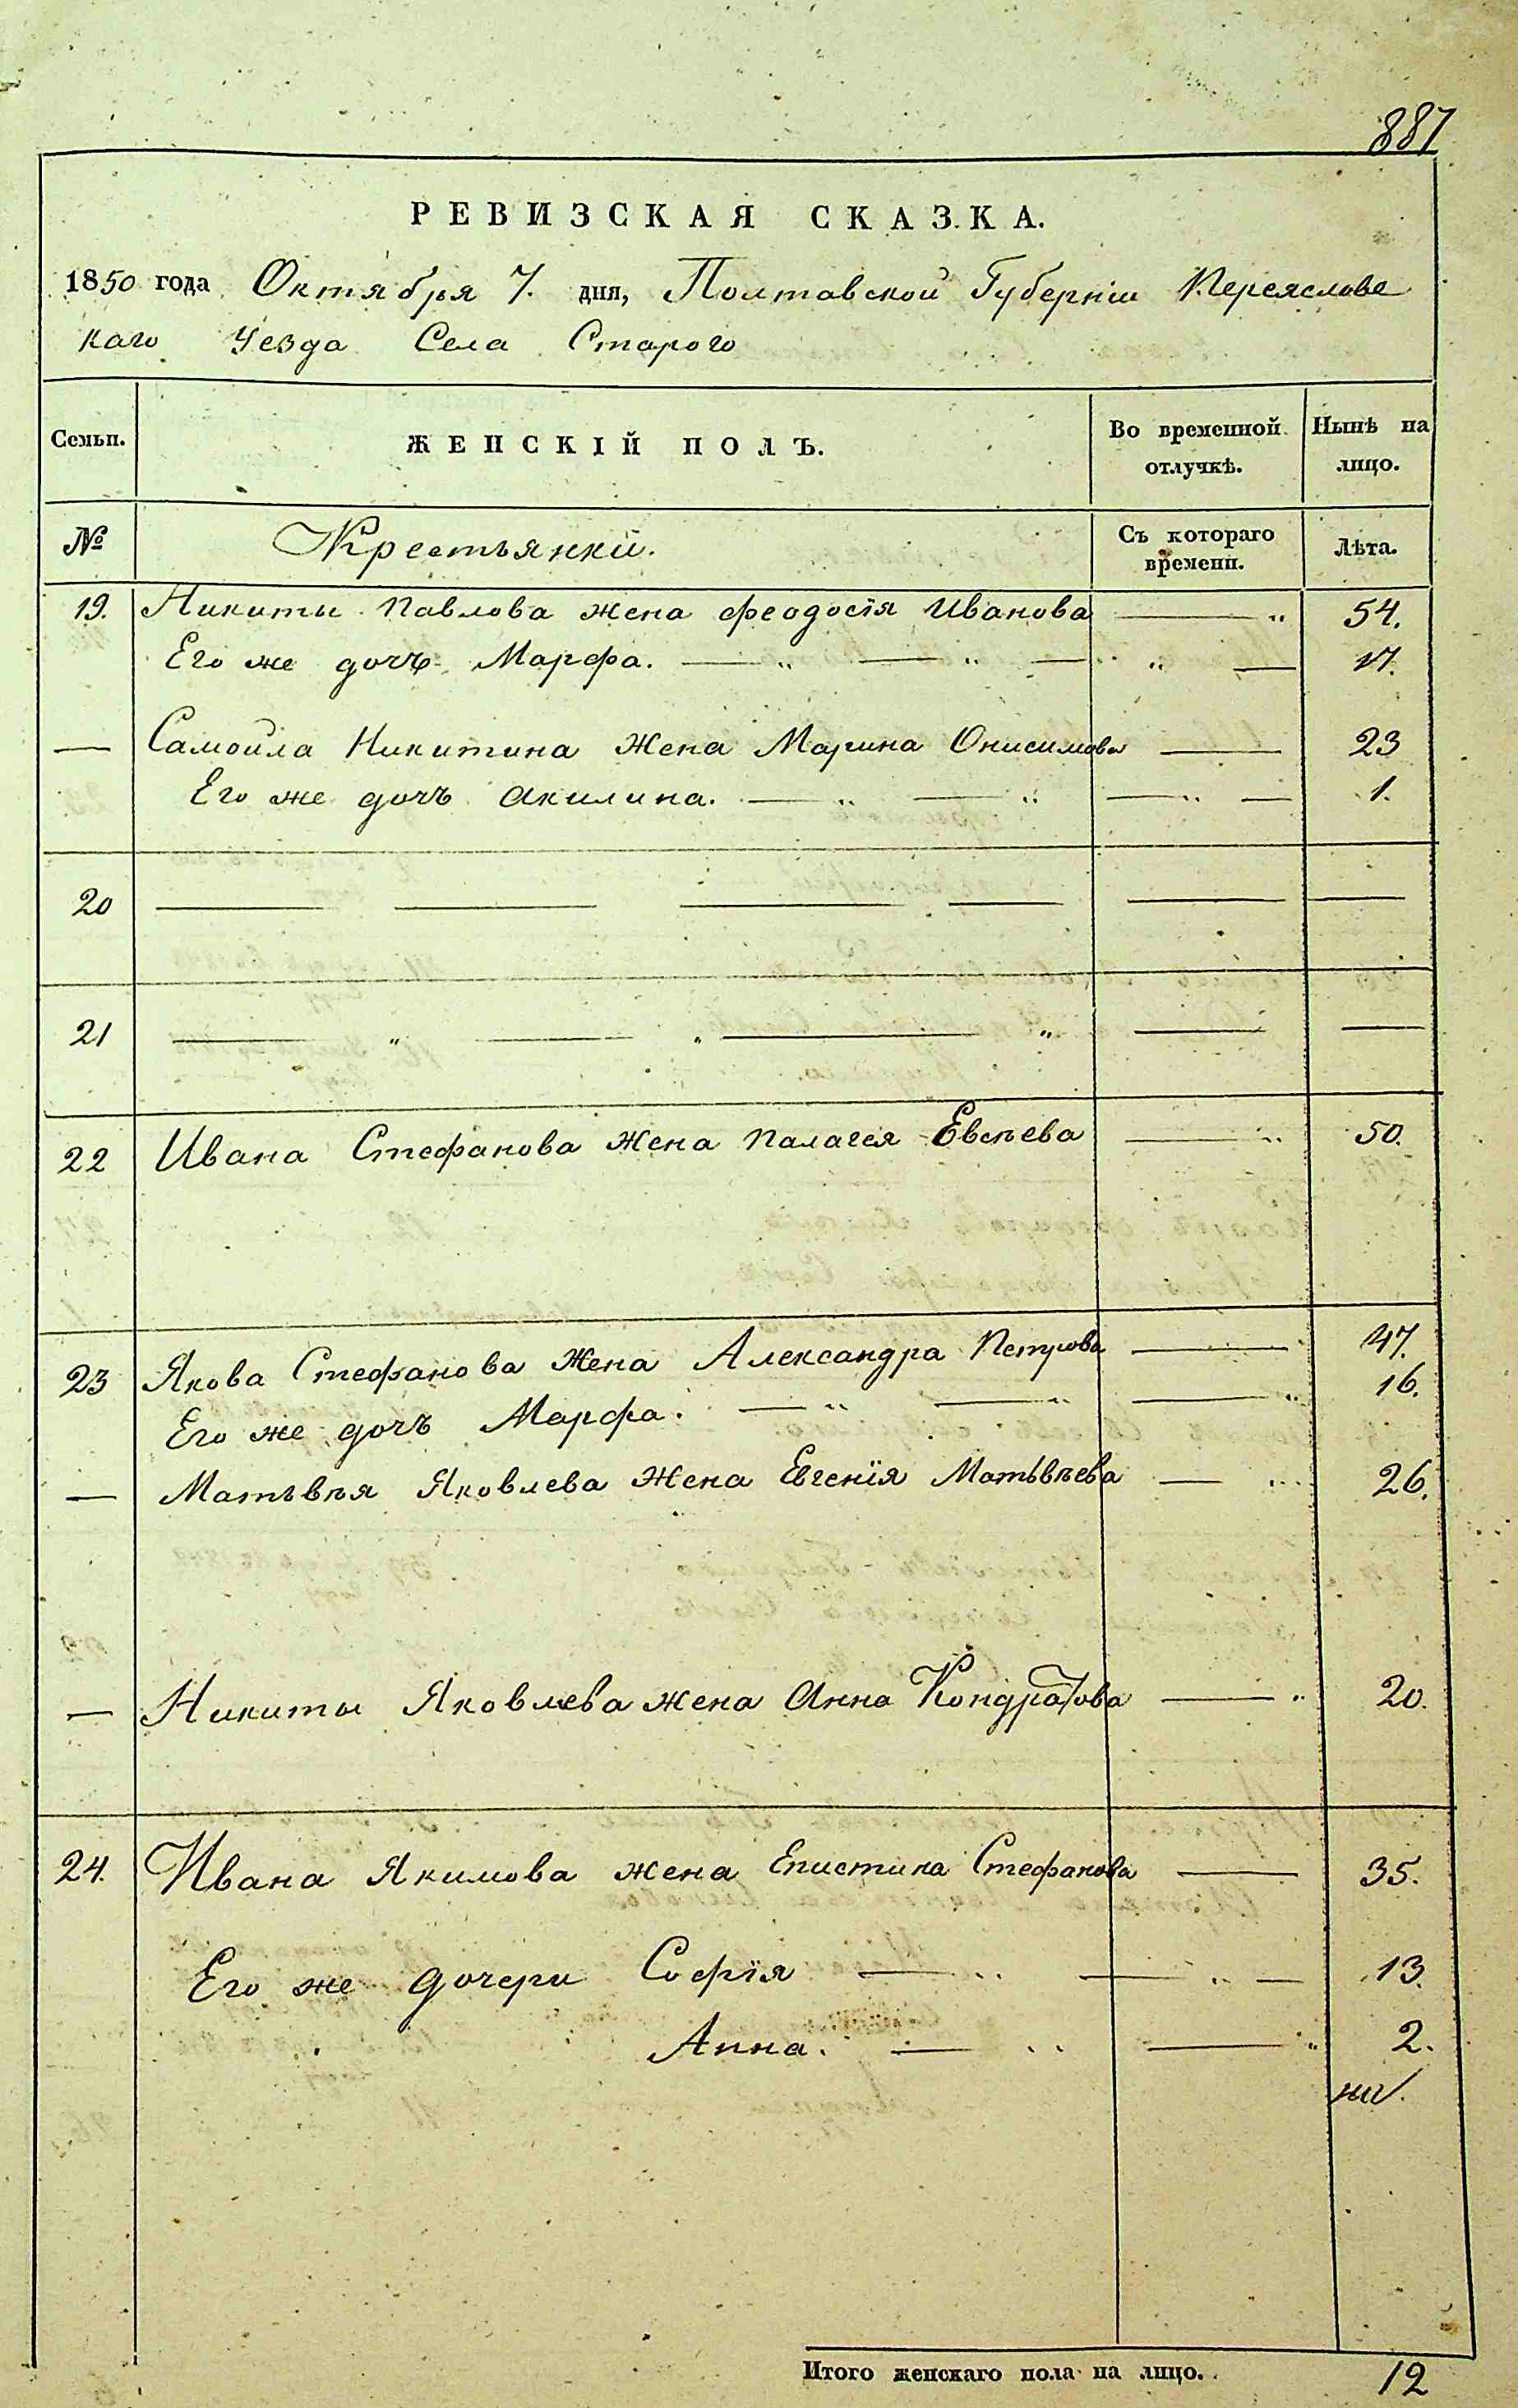 887
РЕВИЗСКАЯ СКАЗКА.
1850 года Октября 7. дня, Полтавской Губернiи Переяслове
каго Уезда Села Старого
Семьи. ЖЕНСКІЙ ПОЛЪ. Во временной отлучкѣ. Нынѣ на лицо.
№ Крестьянки. Съ котораго времени. Лѣта.
19. Никиты Павлова жена феодосiя Иванова 54.
Его же дочь Марфа. 17.
— Самойла Никитина жена Марина Онисимова 23
Его же дочъ Акилина. 1.
20
21
22 Ивана Стефанова жена Палагея Евсѣева 50.
23 Якова Стефанова жена Александра Петрова 47.
Его же дочъ Марфа. 16.
— Матвѣя Яковлева жена Евгенiя Матьвѣева 26.
— Никиты Яковлева жена Анна Кондратова 20.
24. Ивана Якимова жена Епистина Стефанова 35.
Его же дочери Софiя 13.
Анна. 2.
Итого женскаго пола на лицо. 12